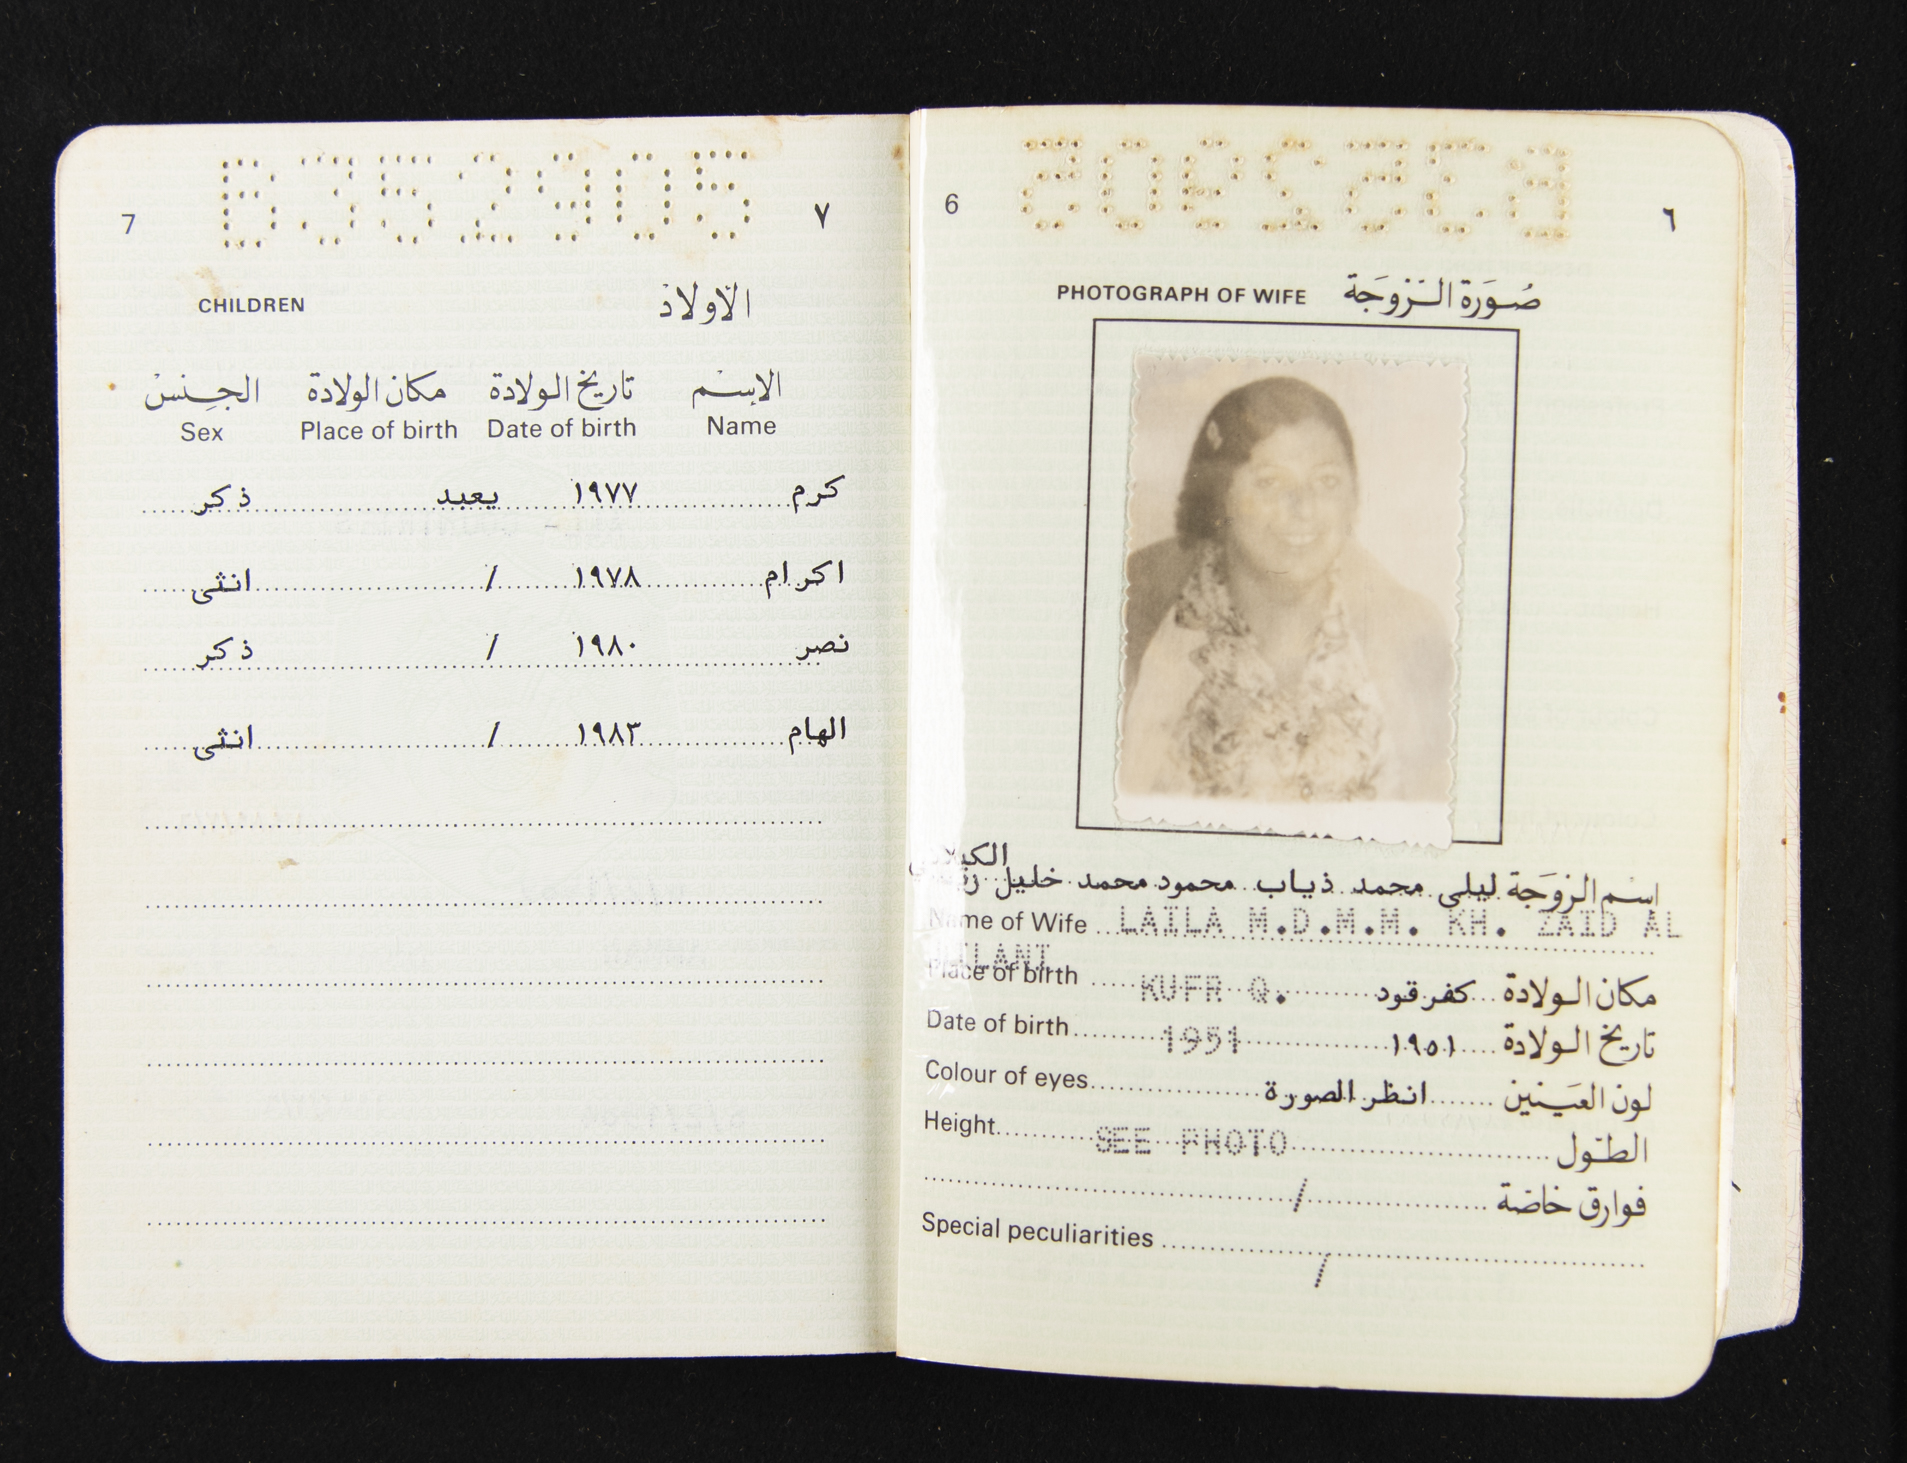 B352905
7 ٧
CHILDREN الأولاد
الجنس مكان الولادة تاريخ الولادة الاسم
Sex Place of birth Date of birth Name
كرم ١٩٧٧ يعبد ذكر
اكرام ١٩٧٨ / انثى
نصر ١٩٨٠ / ذكر
الهام ١٩٨٣ / انثى
B352905
6 ٦
PHOTOGRAPH OF WIFE صُورَة الـزّوجَة
الكيلاني
اسْم الزوجَة ليلى محمد ذياب محمود محمد خليل
Name of Wife LAILA M.D.M.M. KH. ZAID AL
Place of birth KUFR Q. كفر قود مكان الولادة
Date of birth 1951 ١٩٥١ تاريخ الولادة
Colour of eyes انظر الصورة لون العَينين
Height SEE PHOTO الطّول
/ فوارق خاصّة
Special peculiarities /